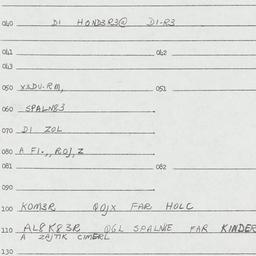 040 DI HOND3R3@ DI-R3
041 042
043
050 V3DU-RM, 051
060 SPALN83
070 DI ZOL
080 A FI-,,ROJ,Z
081 082
090
100 KOM3R QOJX FAR HOLC
110 AL8K83R QGL SPALNIE FAR KINDER
A ZAJTIK CIMERL
130